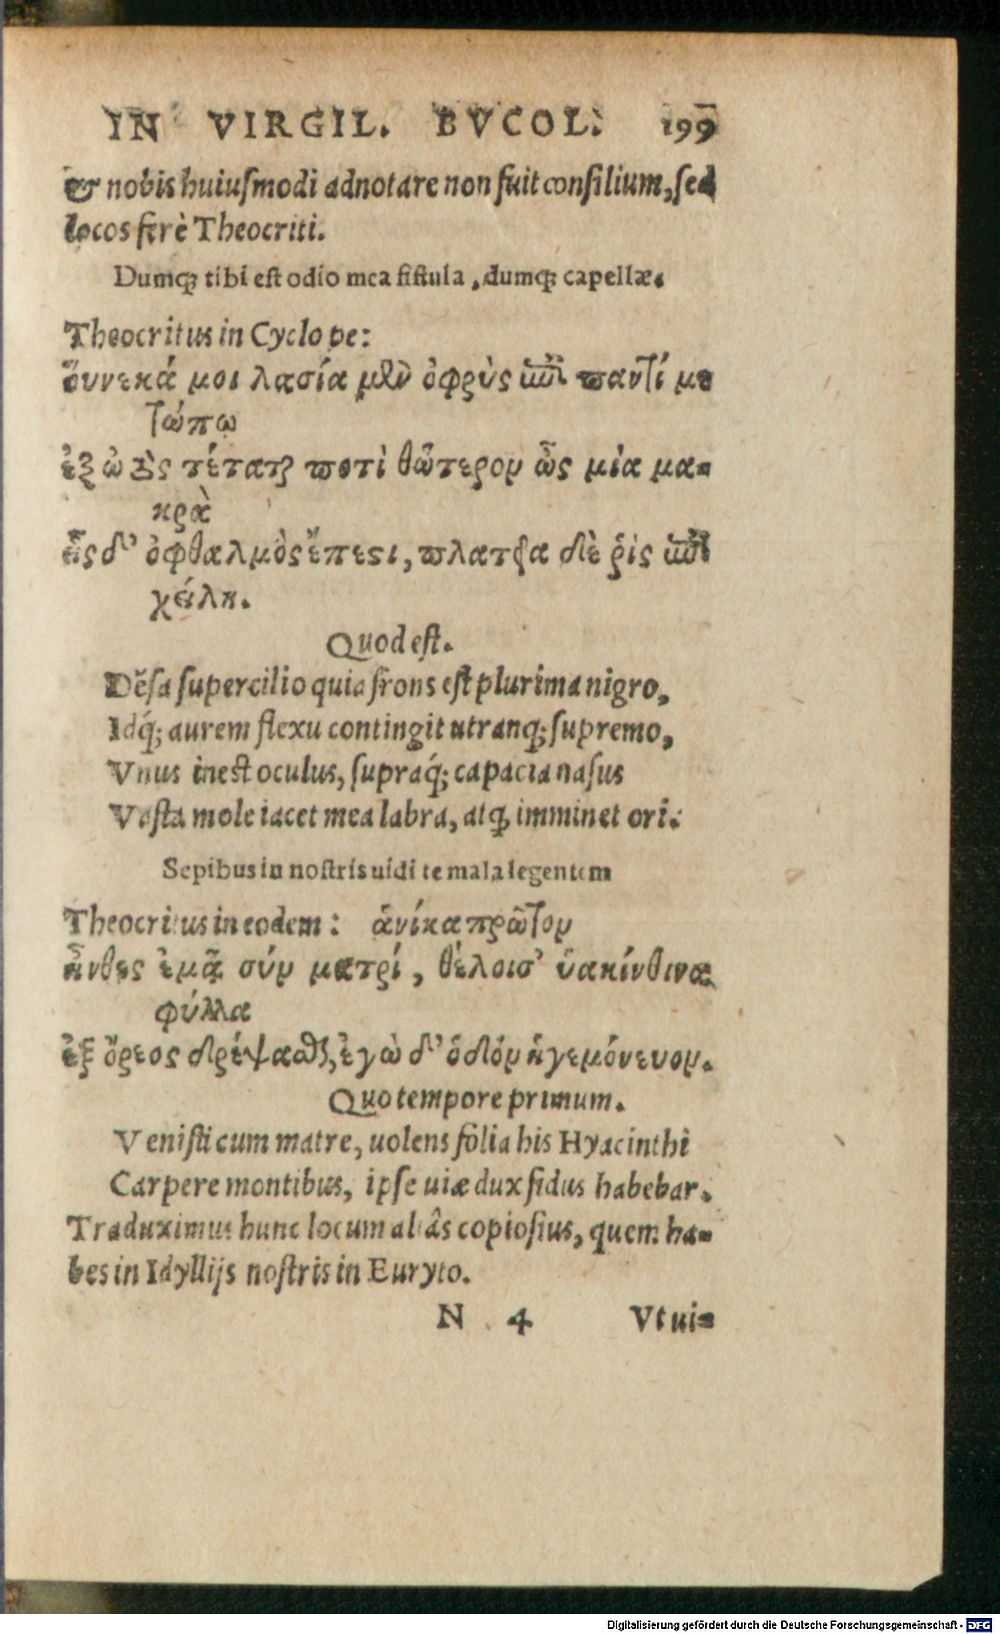 IN VIRGIL. BVCOL. 199
& nobis huiusmodi adnotare non fuit consilium, sed
locos ferè Theocriti.
Dumq; tibi est odio mea fistula, dumq; capellæ.
Theocritus in Cyclope:
οὕνεκά μοι λασία μὲν ὀφρὺς ἐπὶ παντὶ με
τώπῳ
ἐξ ὠτὸς τέταται ποτὶ θὥτερον ὦς μία μα-
κρὰ
εἷς δ' ὀφθαλμὸς ἔπεστι, πλατεῖα δὲ ῥὶς ἐπὶ
χείλει.
Quod est.
Dēsa supercilio quia frons est plurima nigro,
Idq́; aurem flexu contingit utranq; supremo,
Vnus inest oculus, supraq́; capacia nasus
Vasta mole iacet mea labra, atq; imminet ori.
Sepibus in nostris uidi te mala legentem
Theocritus in eodem: ἁνίκα πρᾶτον
ἦνθες ἐμᾷ σὺν ματρί, θέλοισ' ὑακίνθινα
φύλλα
ἐξ ὄρεος δρέψασθαι, ἐγὼ δ' ὁδὸν ἡγεμόνευον.
Quo tempore primum.
Venisti cum matre, uolens folia his Hyacinthi
Carpere montibus, ipse uiæ dux fidus habebar.
Traduximus hunc locum aliâs copiosius, quem ha-
bes in Idyllijs nostris in Euryto.
N 4 Vt ui-
Digitalisierung gefördert durch die Deutsche Forschungsgemeinschaft - DFG